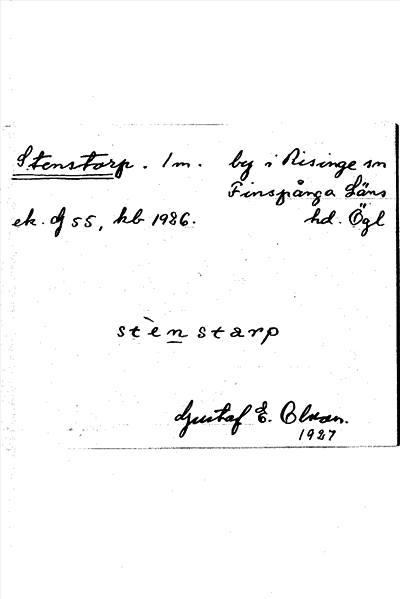 Stenstorp. 1 m. by i Risinge sn
Finspånga Läns
ek. df 55, kb 1926. hd. Ögl
stènstarp
Gustaf E. Olson.
1927